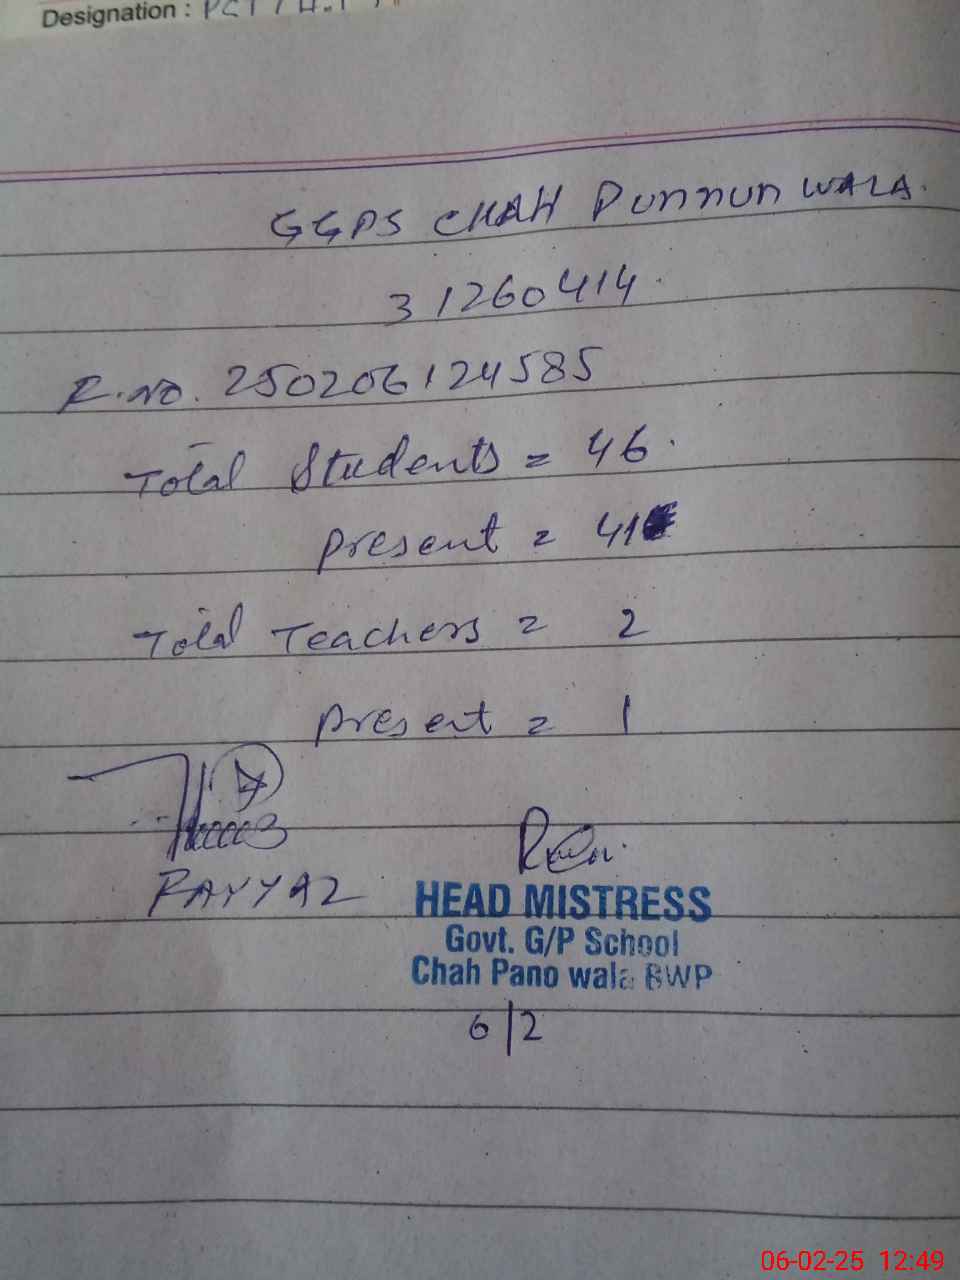 Designation : PET / H.T
GGPS CHAH Punnun WALA.
31260414.
R.No. 250206124585
Total Students = 46.
Present = 41
Total Teachers = 2
Present = 1
FAYYAZ
HEAD MISTRESS
Govt. G/P School
Chah Pano wala BWP
6/2
06-02-25 12:49